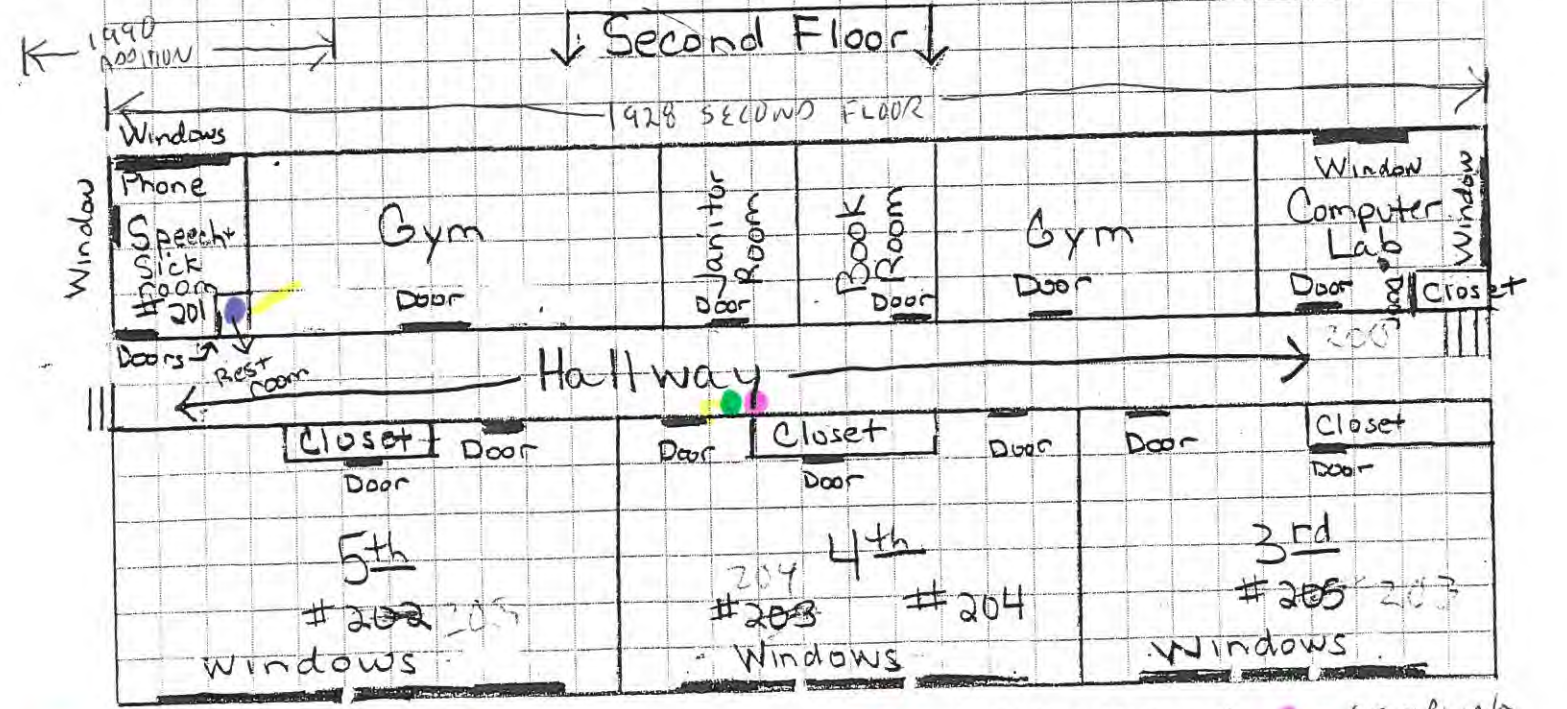 1990
ADDITION
Second Floor
1928 SECOND FLOOR
Windows
Window
Phone
Speech +
Sick
Room
#201
Gym
Door
Janitor
Room
Door
Book
Room
Door
Gym
Door
Window
Computer
Lab
Window
Door
Door
Closet
Doors
Rest
room
200
Hallway
Closet
Door
Door
5th
#202 205
Windows
Door
Closet
Door
Door
4th
204
#203 #204
Windows
Door
Closet
Door
3rd
#205 203
Windows